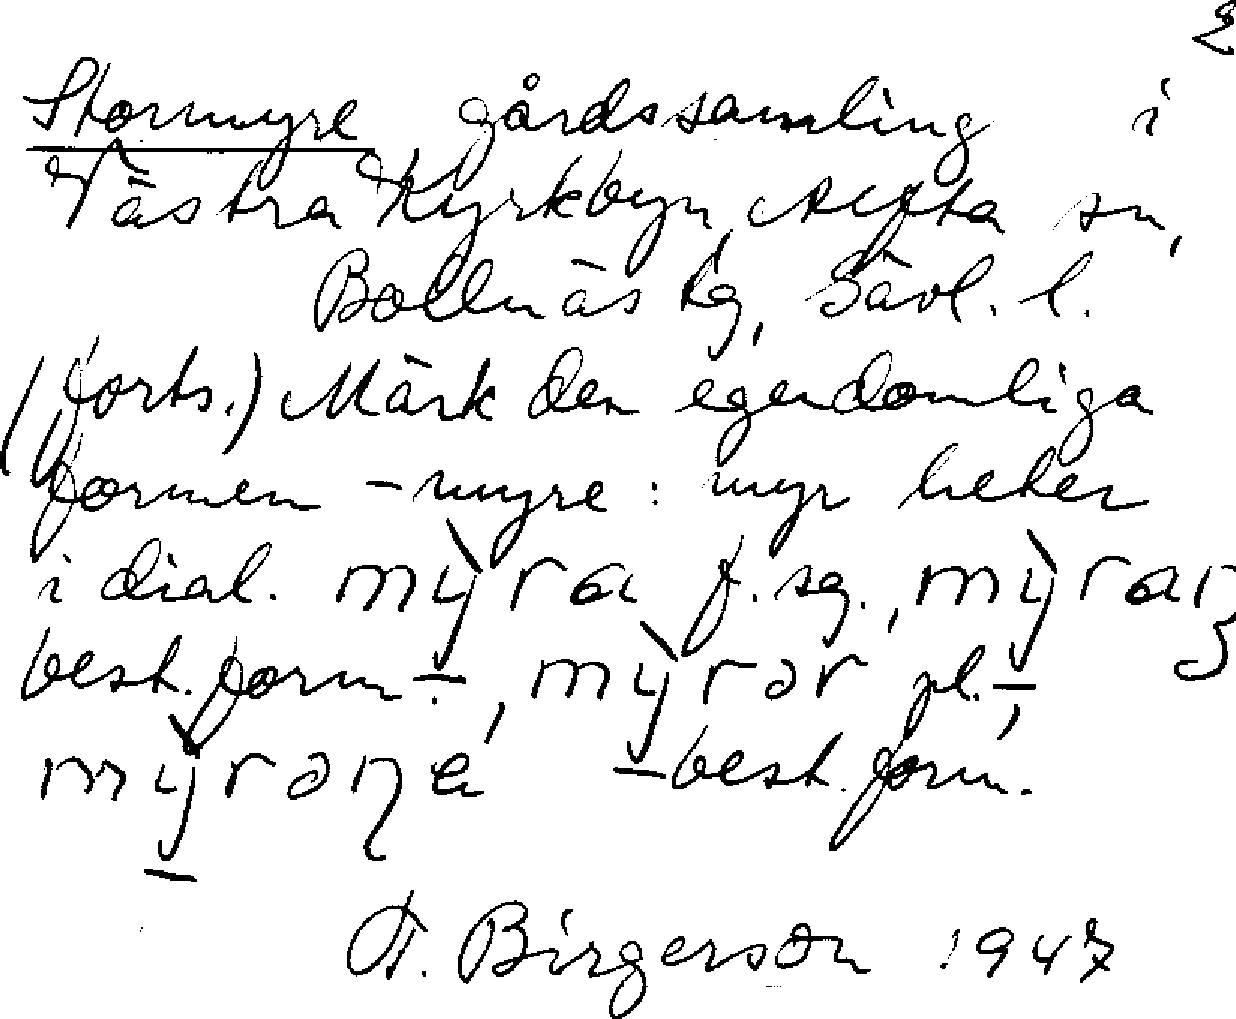 2
Stormyre gårdssamling i
Västra Kyrkbyn, Alfta sn,
Bollnäs tg, Gävl. l.
(forts.) Märk den egendomliga
formen -myre : myr heter
i dial. mỳ̱ra f. sg., mỳ̱raɳ
best. form, mỳ̱rər pl.,
mỳ̱rəɳa best. form.
F. Birgerson 1947